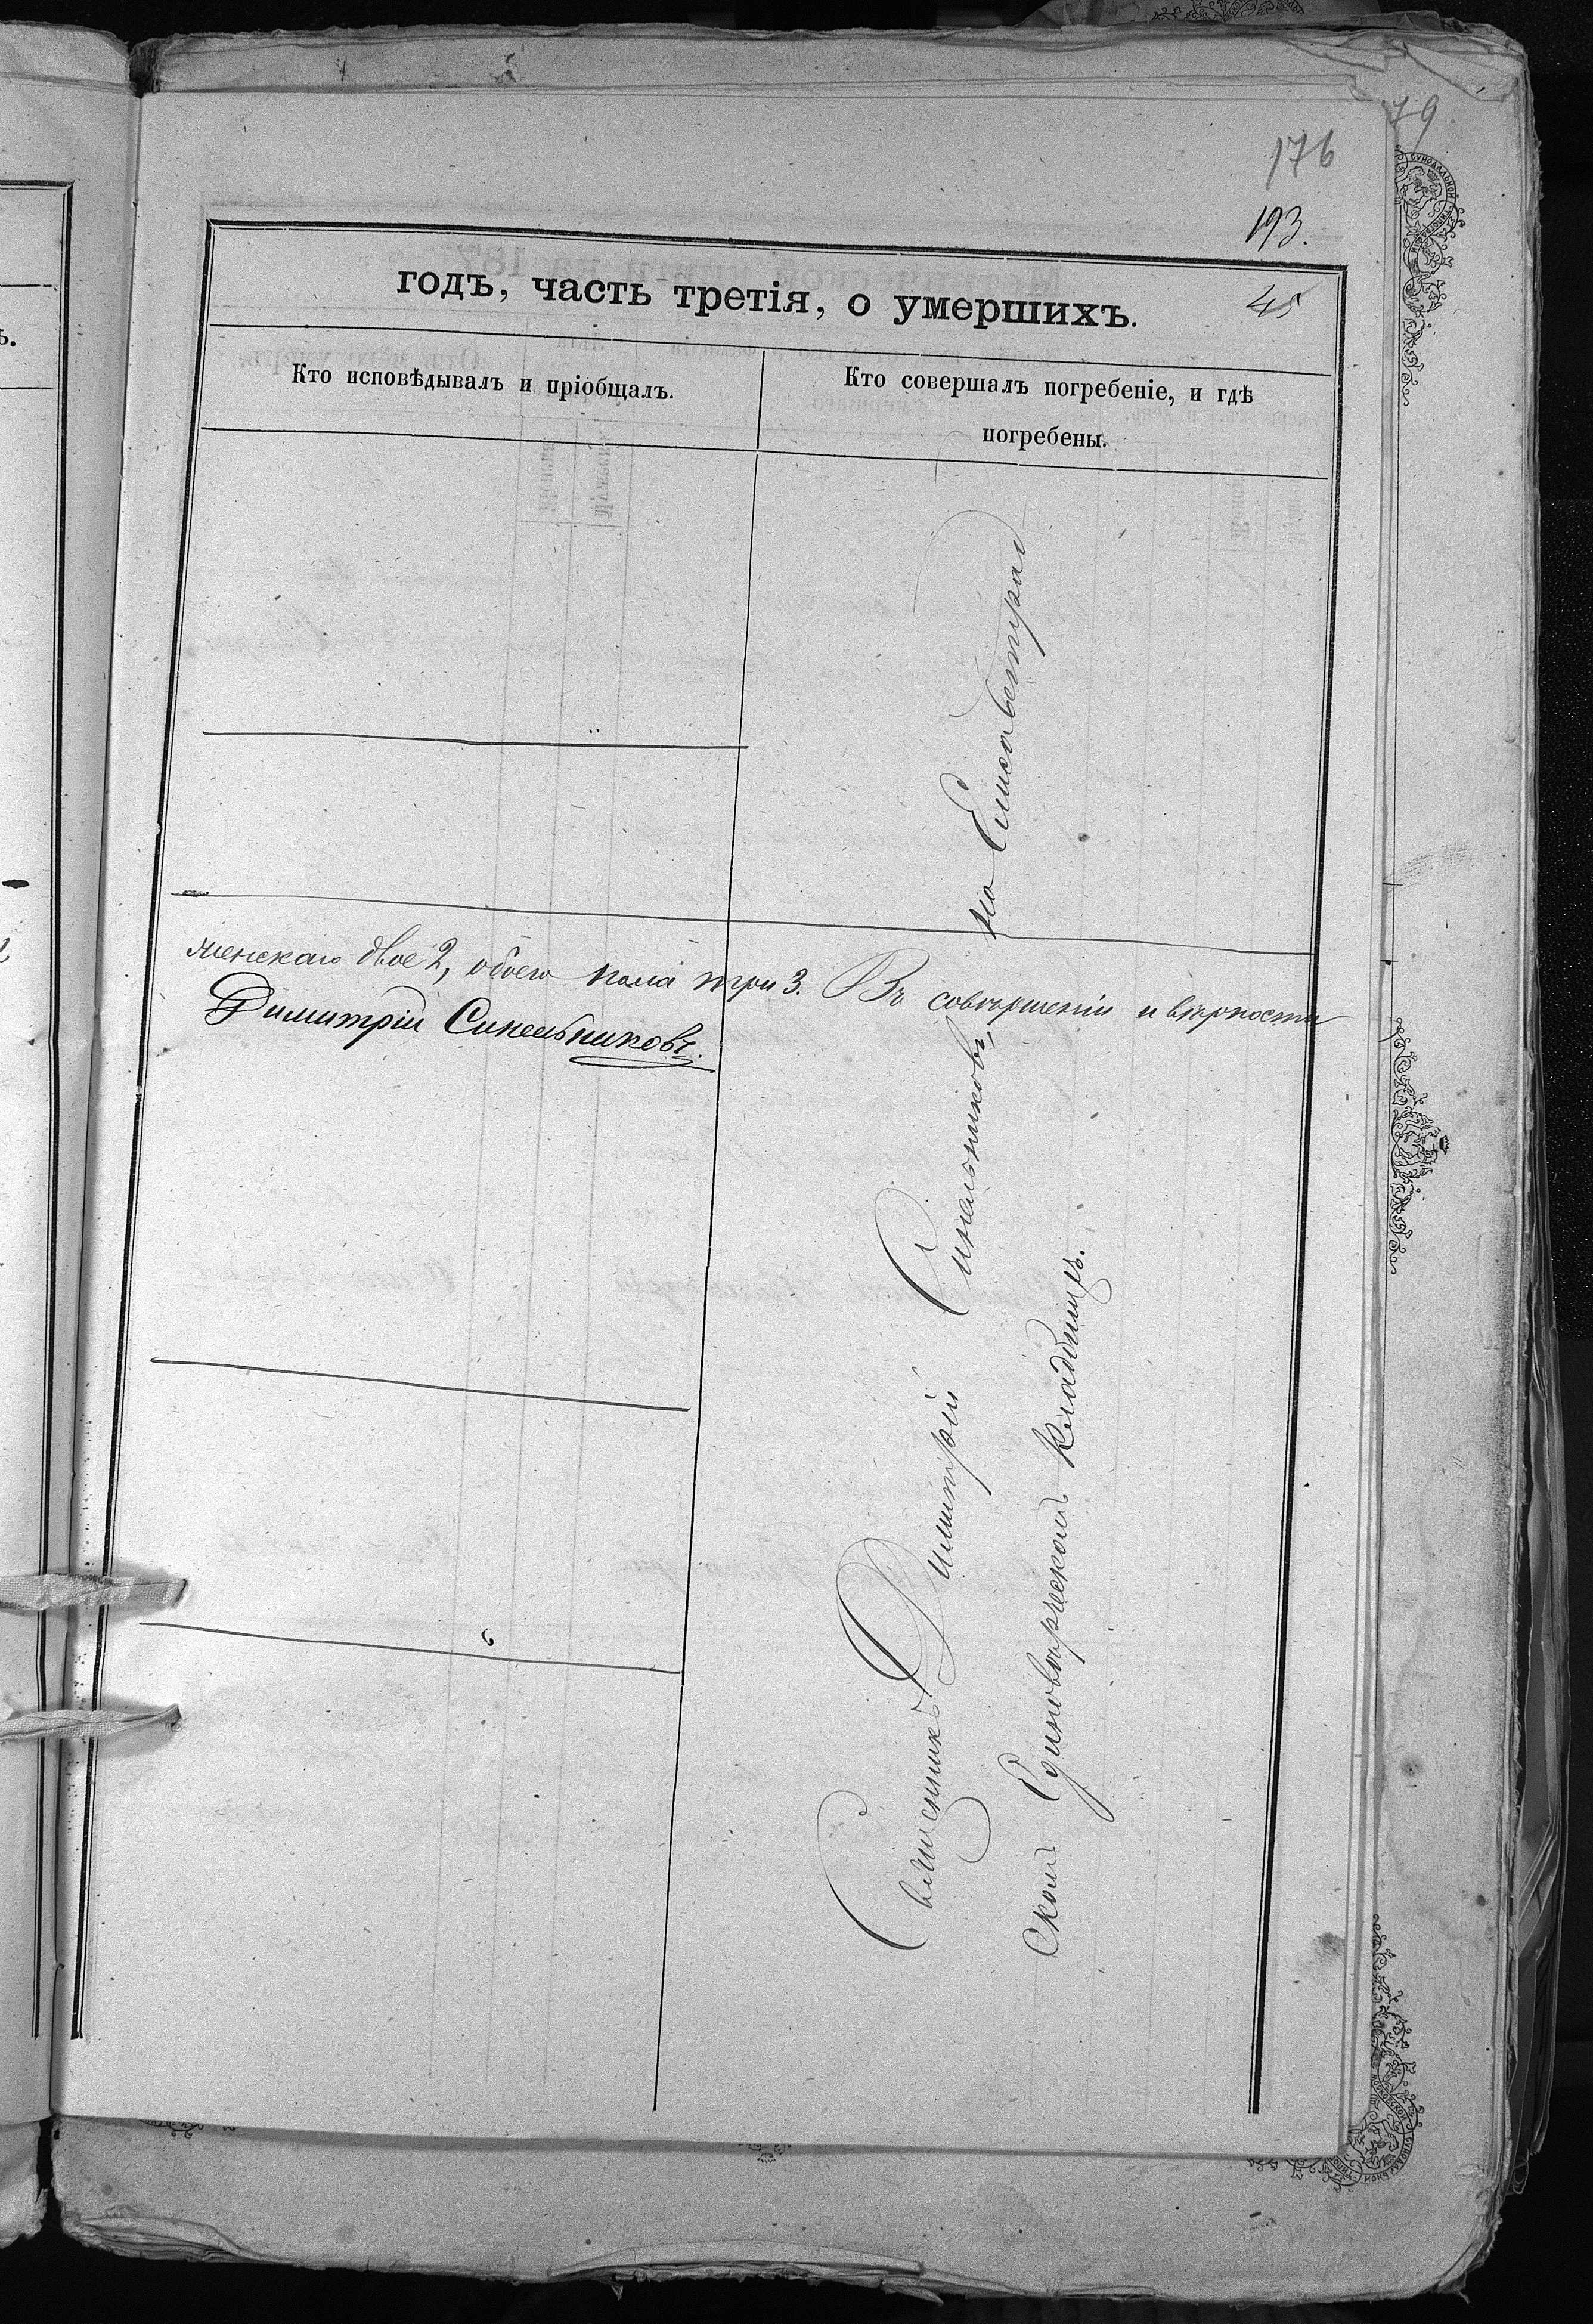 79
176
193.
45
годъ, часть третія, о умершихъ.
Кто исповѣдывалъ и пріобщалъ.
Кто совершалъ погребеніе, и гдѣ
погребены.
женскаго двое 2, обоего пола три 3. Въ совершеніи и вѣрности
Димитрій Синельниковъ.
Священникъ Димитрій Синельниковъ, на Елисаветград
скомъ Единовѣрческомъ кладбищѣ.